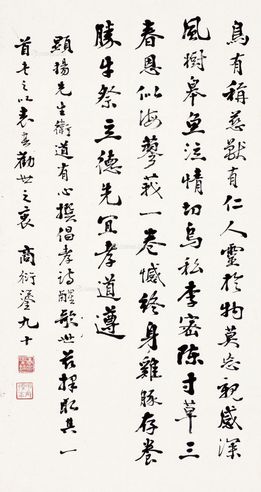 鳥有稱慈獸有仁人靈於物莫忘親感深
風樹皋魚泣情切烏私李密陳寸草三
春恩似海蓼莪一卷憾終身雞豚存養
勝牛祭立德先宜孝道遵
顯揚先生衛道有心撰倡孝詩醒世茲擇取其一
首書之以表其勸世之衷 商衍鎏九十